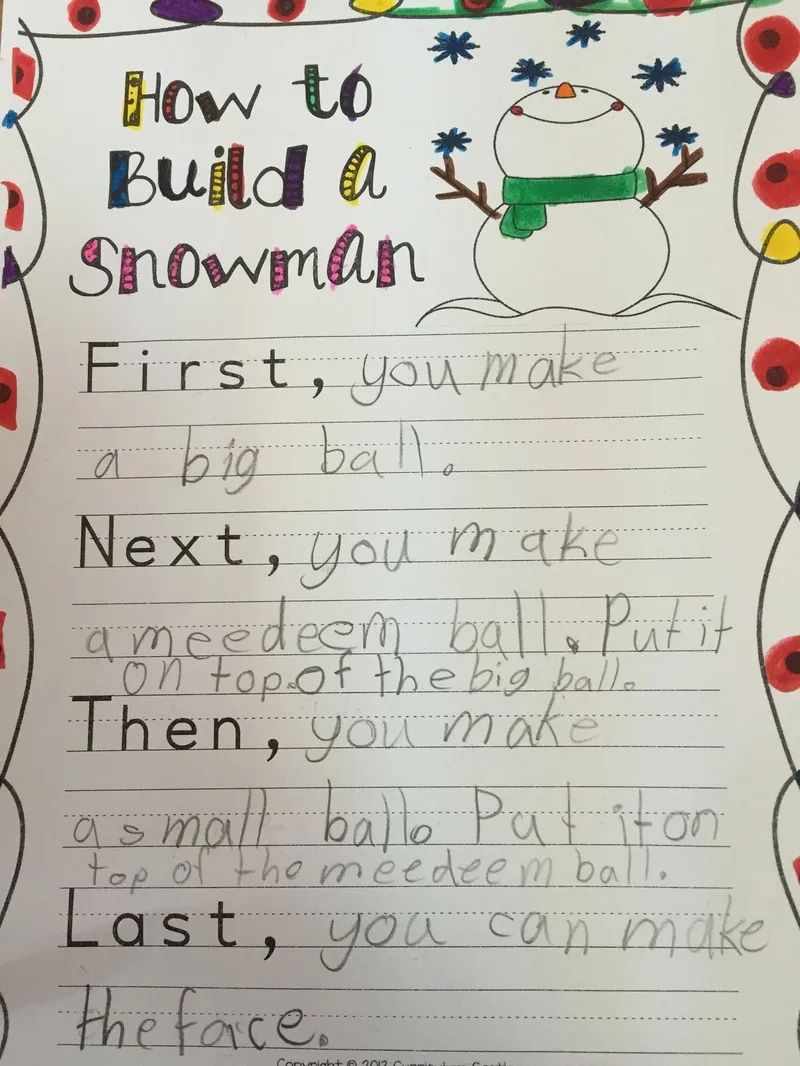 How to
Build a
Snowman
First, you make
a big ball.
Next, you make
a meedeem ball. Put it
on top of the big ball.
Then, you make
a small ball. Put it on
top of the meedeem ball.
Last, you can make
the face.
Copyright © 2012